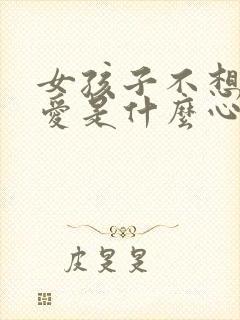 女孩子不想
爱是什麼心
皮皇皇